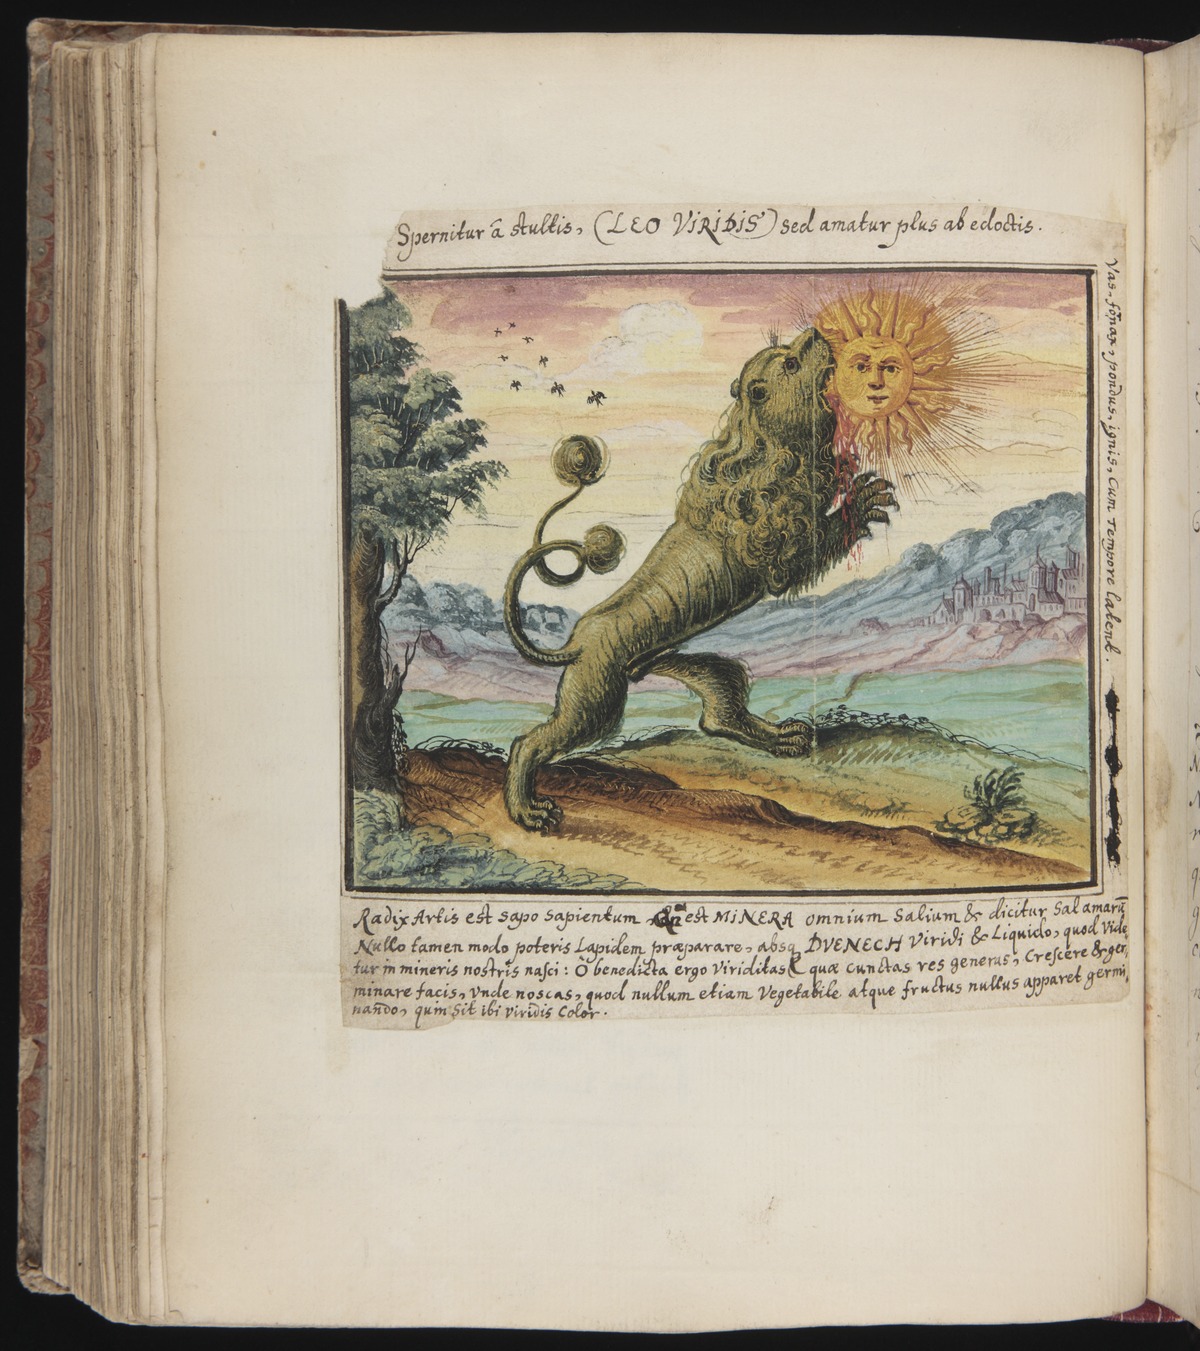 Spernitur â stultis, (LEO VIRIDIS) sed amatur plus ab edoctis.
Vas, fornax, pondus, ignis, cum tempore latent.
Radix Artis est sapo sapientum est MINERA omnium Salium & dicitur Sal amarū
Nullo tamen modo poteris Lapidem præparare, absq DVENECH Viridi & Liquido, quod Vide,
tur in mineris nostris nasci: Ô benedicta ergo Viriditas quæ cunctas res generas, Crescere & ger,
minare facis, Vnde noscas, quod nullum etiam Vegetabile atque fructus nullus apparet germi,
nando, quin Sit ibi viridis Color.